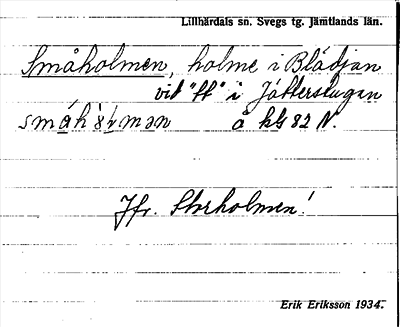 Lillhärdals sn. Svegs tg. Jämtlands län.
Småholmen, holme i Blädjan
vid "tt" i Jätterstugan
å kbl 82 N.
Jfr. Storholmen!
Erik Eriksson 1934.